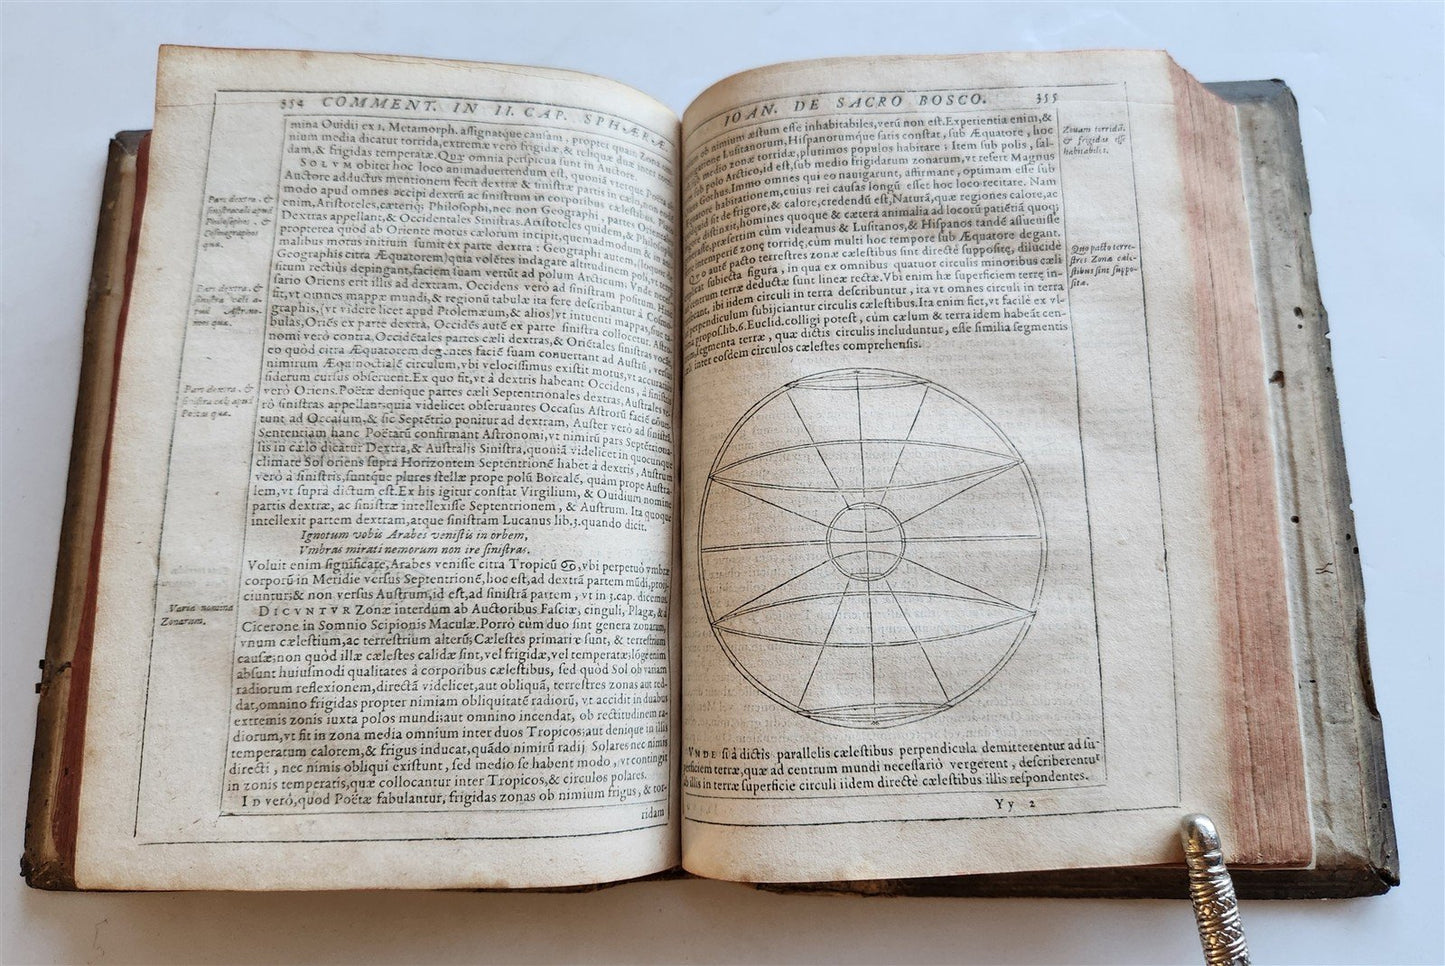 354 COMMENT. IN II. CAP. SPHÆRÆ
mina Ouidij ex 1. Metamorph. assignatque causam, propter quam Zona
nium media dicatur torrida, extremæ verò frigidæ, & reliquæ duæ inter
dam, & frigidas temperatæ. Quæ omnia perspicua sunt in Auctore.
SOLVM obiter hoc loco animaduertendum est, quoniā vterque Poëta
Auctore adductus mentionem fecit dextræ & sinistræ partis in cælo,
modo apud omnes accipi dextrū ac sinistrum in corporibus cælestibus.
enim, Aristoteles, cæteriq; Philosophi, nec non Geographi, partes Orientales
Dextras appellant, & Occidentales Sinistras. Aristoteles quidem, & Philosophi
propterea quod ab Oriente motus cælorum incipit, quemadmodum &
malibus motus initium sumit ex parte dextra: Geographi autem, (loquor
Geographis citra Æquatorem) quia volētes indagare altitudinem poli,
situm rectiùs depingant, faciem suam vertūt ad polum Arcticum. Vnde
sario Oriens erit illis ad dextram, Occidens verò ad sinistram positum.
fit, vt omnes mappæ mundi, & regionū tabulæ ita fere describantur à Cosmo-
graphis, (vt videre licet apud Ptolemæum, & alios) vt intuenti mappas, siue ta-
bulas, Oriēs ex parte dextra, Occidēs autē ex parte sinistra collocetur. Astro-
nomi verò contra, Occidētales partes cæli dextras, & Oriētales sinistras vocāt,
eo quòd citra Æquatorem degentes faciē suam conuertant ad Austrū, versus
nimirum Æquinoctialē circulum, vbi velocissimus existit motus, vt accuratiùs
siderum cursus obseruent. Ex quo fit, vt à dextris habeant Occidens, à sinistris
verò Oriens. Poëtæ denique partes cæli Septentrionales dextras, Australes ve-
rò sinistras appellant; quia videlicet obseruantes Occasus Astrorū faciē cōuer-
tunt ad Occasum, & sic Septētrio ponitur ad dextram, Auster verò ad sinistrā.
Sententiam hanc Poëtarū confirmant Astronomi, vt nimirū pars Septētriona-
lis in cælo dicatur Dextra, & Australis Sinistra, quoniā videlicet in quocunque
climate Sol oriens supra Horizontem Septentrionē habet à dextris, Austrum
verò à sinistris, suntque plures stellæ prope polū Borealē, quàm prope Austra-
lem, vt suprà dictum est. Ex his igitur constat Virgilium, & Ouidium nomine
partis dextræ, ac sinistræ intellexisse Septentrionem, & Austrum. Ita quoque
intellexit partem dextram, atque sinistram Lucanus lib. 3. quando dicit.
Ignotum vobis Arabes venistis in orbem,
Vmbras mirati nemorum non ire sinistras.
Voluit enim significare, Arabes venisse citra Tropicū ♋, vbi perpetuò vmbræ
corporū in Meridie versus Septentrionē, hoc est, ad dextrā partem mūdi, proij-
ciuntur; & non versus Austrum, id est, ad sinistrā partem, vt in 3. cap. dicemus.
DICVNTVR Zonæ interdum ab Auctoribus Fasciæ, cinguli, Plagæ, & à
Cicerone in Somnio Scipionis Maculæ. Porrò cùm duo sint genera zonarum,
vnum cælestium, ac terrestrium alterū; Cælestes primariæ sunt, & terrestrium
causæ; non quòd illæ cælestes calidæ sint, vel frigidæ, vel temperatæ; lōgè enim
absunt huiusmodi qualitates à corporibus cælestibus, sed quòd Sol ob variam
radiorum reflexionem, directā videlicet, aut obliquā, terrestres zonas aut red-
dat, omnino frigidas propter nimiam obliquitatē radiorū, vt accidit in duabus
extremis zonis iuxta polos mundi; aut omnino incendat, ob rectitudinem ra-
diorum, vt fit in zona media omnium inter duos Tropicos; aut denique in illis
temperatum calorem, & frigus inducat, quādo nimirū radij Solares nec nimis
directi, nec nimis obliqui existunt, sed medio se habent modo, vt contingit
in zonis temperatis, quæ collocantur inter Tropicos, & circulos polares.
ID verò, quod Poëtæ fabulantur, frigidas zonas ob nimium frigus, & tor-
ridam
Pars dextra, &
sinistra cæli apud
Philosophos, &
Cosmographos
quæ.
Pars dextra, &
sinistra cæli a-
pud Astrono-
mos quæ.
Pars dextra, &
sinistra cæli apud
Poëtas quæ.
Varia nomina
Zonarum.
IOAN. DE SACRO BOSCO. 355
ob nimium æstum esse inhabitabiles, verū non est. Experientia enim, &
Lusitanorum, Hispanorumque satis constat, sub Æquatore, hoc
medio zonæ torridæ, plurimos populos habitare: Item sub polis, sal-
sub polo Arctico, id est, sub medio frigidarum zonarum, vt refert Magnus
Gothus. Immo omnes qui eo nauigarunt, affirmant, optimam esse sub
Æquatore habitationem, cuius rei causas longū esset hoc loco recitare. Nam
quid sit de frigore, & calore, credendū est, Naturā, quæ regiones calore, ac
frigore distinxit, homines quoque & cætera animalia ad locorū patiētiā quoq;
præsertim cùm videamus & Lusitanos, & Hispanos tandē assueuisse
intemperiē zonę torridę, cùm multi hoc tempore sub Æquatore degant.
QVO autē pacto terrestres zonæ cælestibus sint directè suppositę, dilucidè
explicat subiecta figura, in qua ex omnibus quatuor circulis minoribus cæli
centrum terræ deductæ sunt lineæ rectæ. Vbi enim hæ superficiem terrę in-
ibi iidem circuli in terra describuntur, ita vt omnes circuli in terra
perpendiculum subijciantur circulis cælestibus. Ita enim fiet, vt facilè ex vl-
propos. lib. 6. Euclid. colligi potest, cùm cælum & terra idem habeāt cen-
segmenta terræ, quæ dictis circulis includuntur, esse similia segmentis
inter eosdem circulos cælestes comprehensis.
VNDE si à dictis parallelis cælestibus perpendicula demitterentur ad su-
perficiem terræ, quæ ad centrum mundi necessariò vergerent, describerentur
ab illis in terræ superficie circuli iidem directè cælestibus illis respondentes.
Yy 2
Zonam torridā,
& frigidas esse
habitabiles.
Quo pacto terre-
stres Zonæ cæle-
stibus sint suppo-
sitæ.